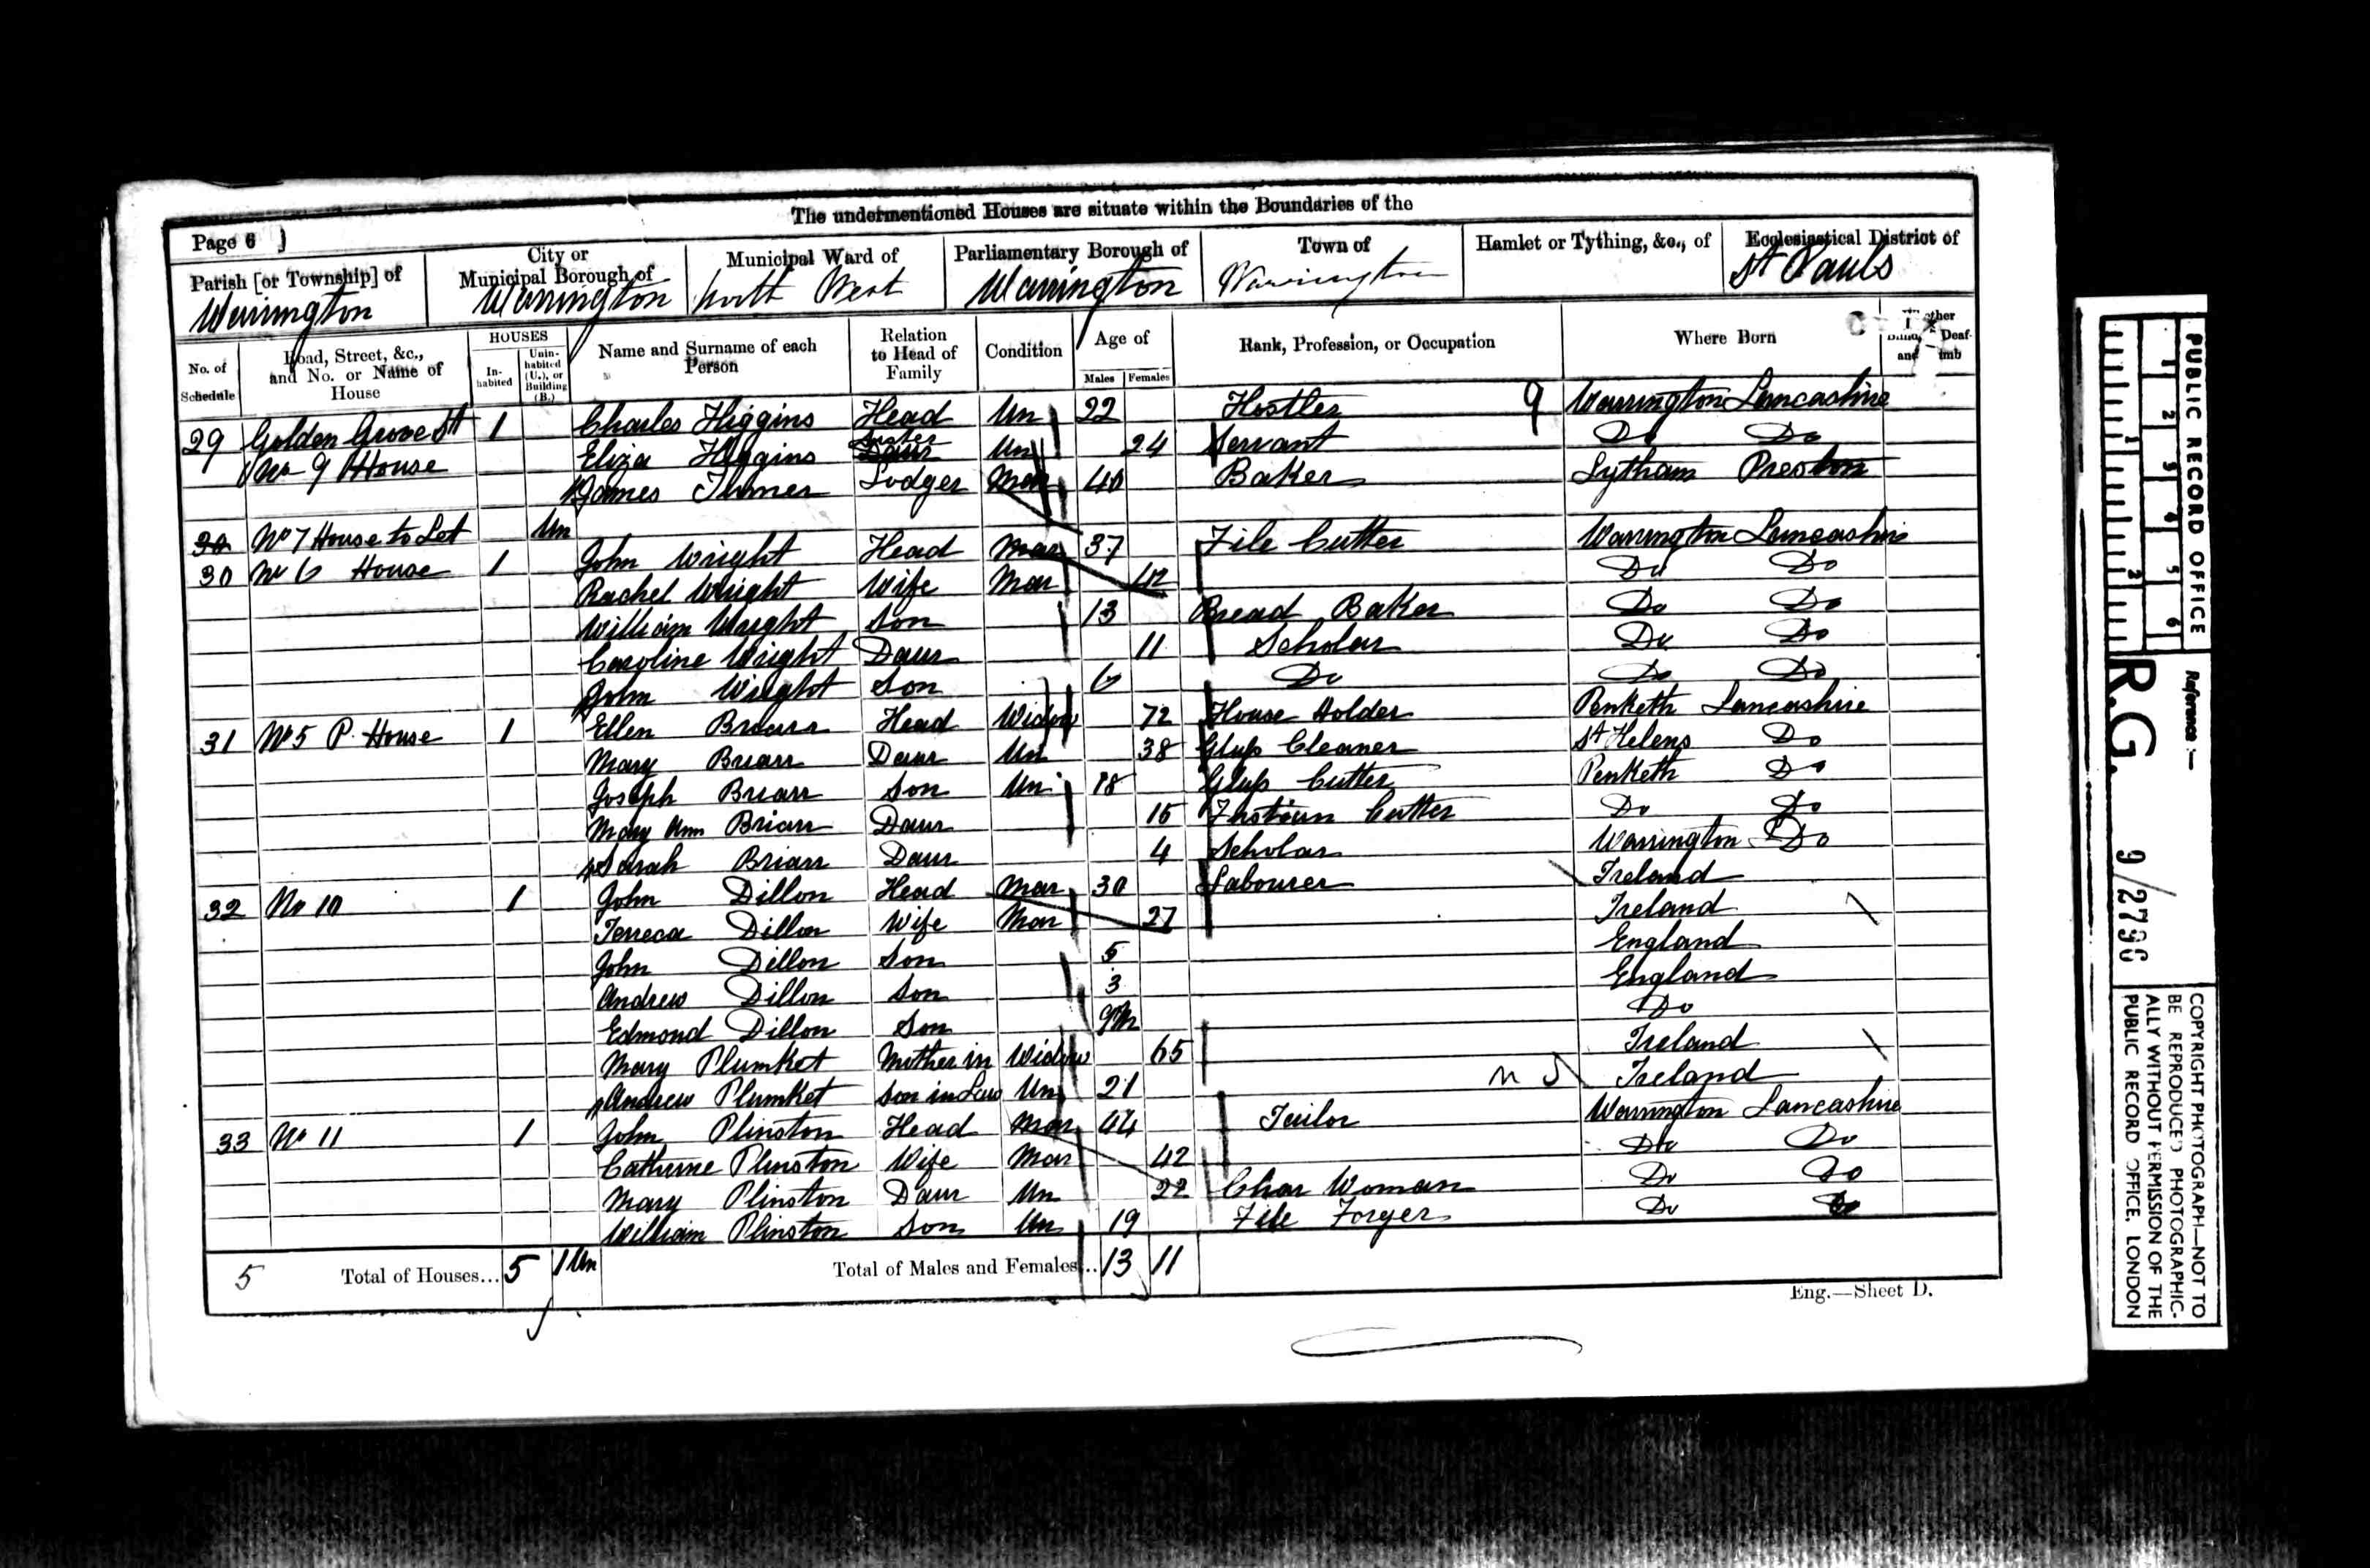 The undermentioned Houses are situate within the Boundaries of the
Page 6 )
Parish [or Township] of Warrington
City or Municipal Borough of Warrington
Municipal Ward of North West
Parliamentary Borough of Warrington
Town of Warrington
Hamlet or Tything, &c., of
Ecclesiastical District of St Pauls
No. of Schedule
Road, Street, &c., and No. or Name of House
HOUSES
In-habited
Unin-habited (U.), or Building (B.)
Name and Surname of each Person
Relation to Head of Family
Condition
Age of
Males Females
Rank, Profession, or Occupation
Where Born
29 Golden Grove St 1 Charles Higgins Head Un 22 Hostler 9 Warrington Lancashire
No 9 House Eliza Higgins Sister Daur Un 24 Servant Do Do
James Turner Lodger Mar 40 Baker Lytham Preston
30 No 7 House to Let Un
30 No 6 House 1 John Wright Head Mar 37 File Cutter Warrington Lancashire
Rachel Wright Wife Mar 42 Do Do
William Wright Son 13 Bread Baker Do Do
Caroline Wright Daur 11 Scholar Do Do
John Wright Son 6 Do Do Do
31 No 5 P. House 1 Ellen Briars Head Widow 72 House Holder Penketh Lancashire
Mary Briars Daur Un 38 Glass Cleaner St Helens Do
Joseph Briars Son Un 18 Glass Cutter Penketh Do
Mary Ann Briars Daur 15 Fustian Cutter Do Do
Sarah Briars Daur 4 Scholar Warrington Do
32 No 10 1 John Dillon Head Mar 30 Labourer Ireland
Dillon Wife Mar 27 Ireland
John Dillon Son 5 England
Andrew Dillon Son 3 England
Edmond Dillon Son 9m Do
Mary Plumket Mother in Widow 65 Ireland
Andrew Plumket Son in Law Un 21 Ireland
33 No 11 1 John Plinston Head Mar 44 Tailor Warrington Lancashire
Catherine Plinston Wife Mar 42 Do Do
Mary Plinston Daur Un 22 Char Woman Do Do
William Plinston Son Un 19 File Forger Do Do
5 Total of Houses... 5 1 Un Total of Males and Females... 13 11
Eng.—Sheet D.
PUBLIC RECORD OFFICE
1 2 3 4 5 6
1 2
Reference :—
R.G. 9/2796
COPYRIGHT PHOTOGRAPH—NOT TO
BE REPRODUCED PHOTOGRAPHIC-
ALLY WITHOUT PERMISSION OF THE
PUBLIC RECORD OFFICE, LONDON